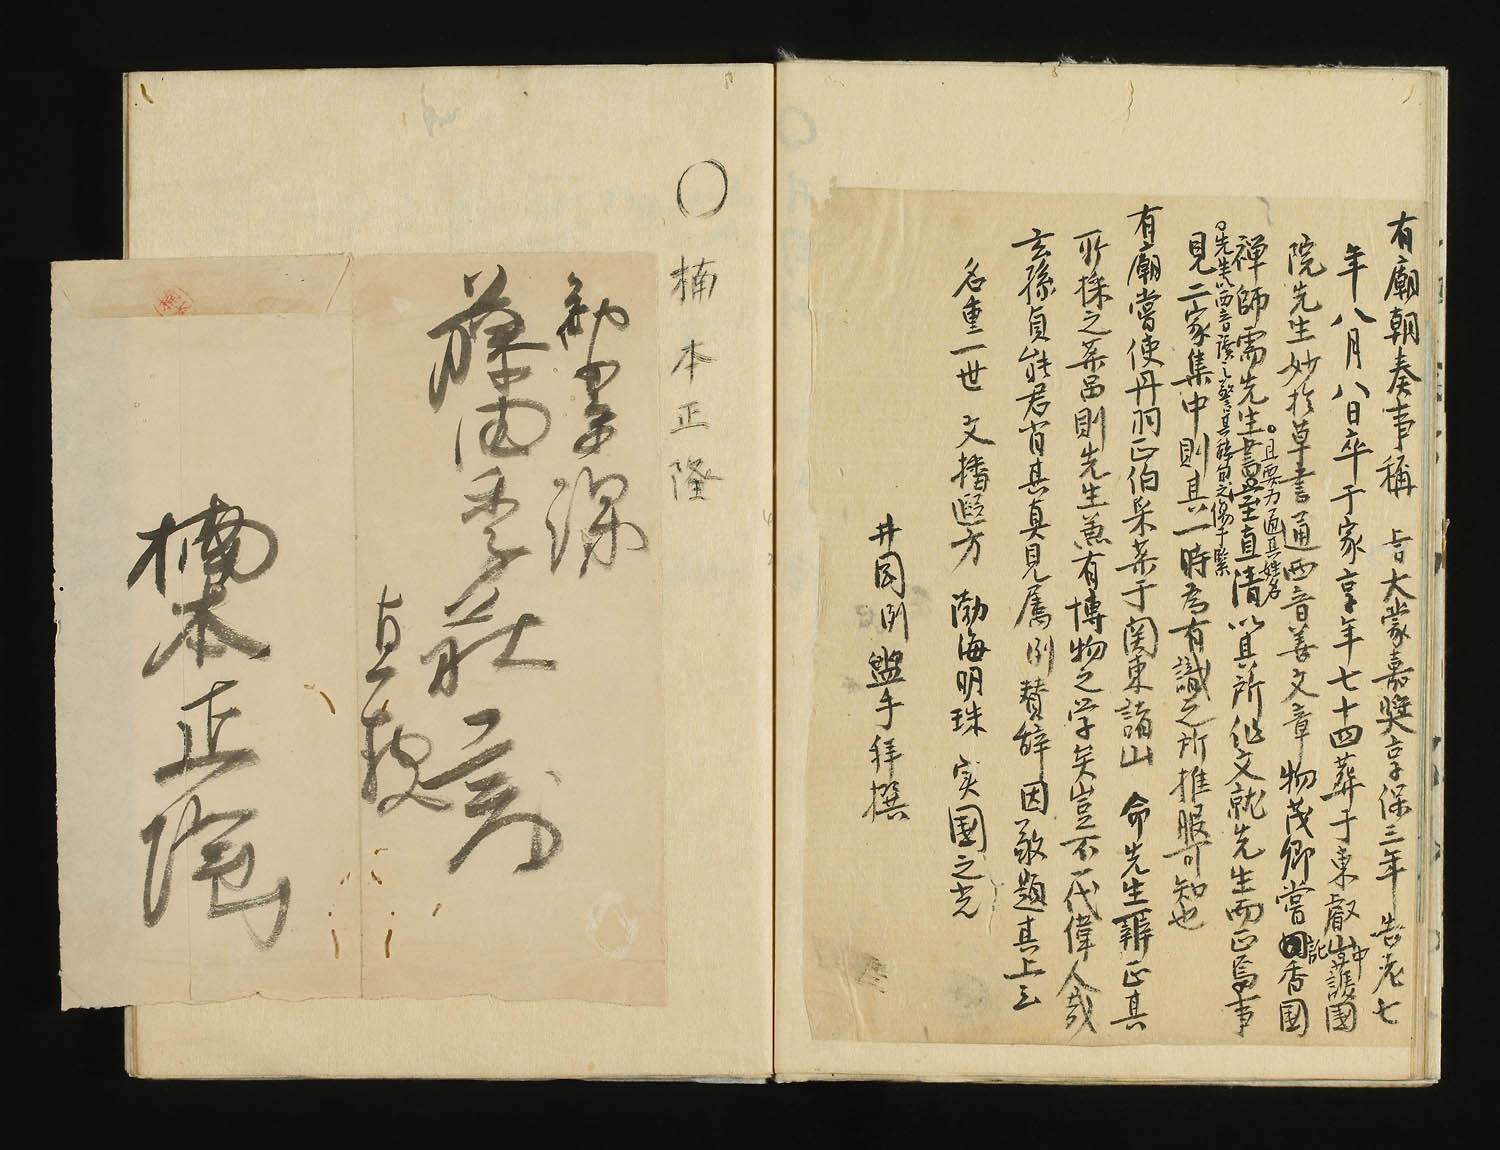 有廟朝奏事稱 旨大蒙嘉奬享保三年告老七
年八月八日卒于家享年七十四葬于東叡山中護國
院先生妙於草書通西音善文章物茂卿嘗記香國
禅師需先生書至直清以其所作文就先生而正焉事
且要力通其姓名
見二家集中則其一時為有識之所推服可知也
有廟嘗使丹羽正伯采薬于関東諸山 命先生辨正其
所採之薬品則先生兼有博物之学矣豈不一代偉人哉
玄孫貞能君肖其真見属例賛辞因敬題其上云
名重一世 文播遐方 渤海明珠 実國之光
井岡例盥手拝撰
○楠本正隆
藤田季荘君
直披
楠本正隆